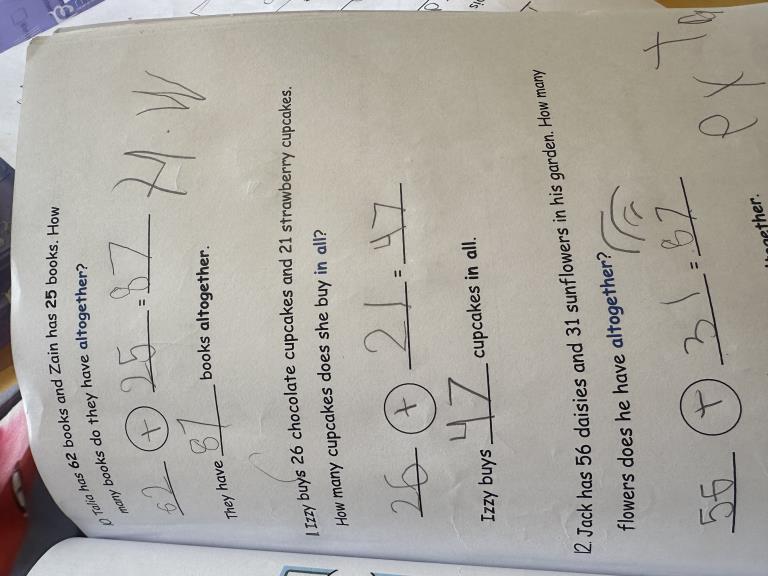 Talia has 62 books and Zain has 25 books. How
many books do they have altogether?
62 + 25 = 87
They have 87 books altogether.
Izzy buys 26 chocolate cupcakes and 21 strawberry cupcakes.
How many cupcakes does she buy in all?
26 + 21 = 47
Izzy buys 47 cupcakes in all.
12. Jack has 56 daisies and 31 sunflowers in his garden. How many
flowers does he have altogether?
56 + 31 = 87